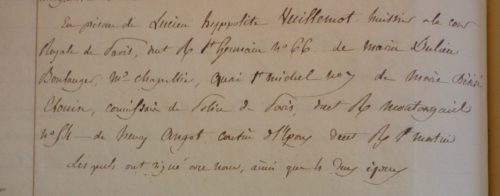 En présence de Lucien hyppolite Huillemot huissier a la cour
Royale de Paris, det R St Germain n° 66 de Marin Julien
Boulanger, Md chapellier, quai St michel no 7 de Marie Désiré
commissaire de Police de Paris det R montorgueil
n° 54 – de henry Angot cousin de l'Epoux det R St martin
Lesquels ont signé avec nous, ainsi que les deux époux